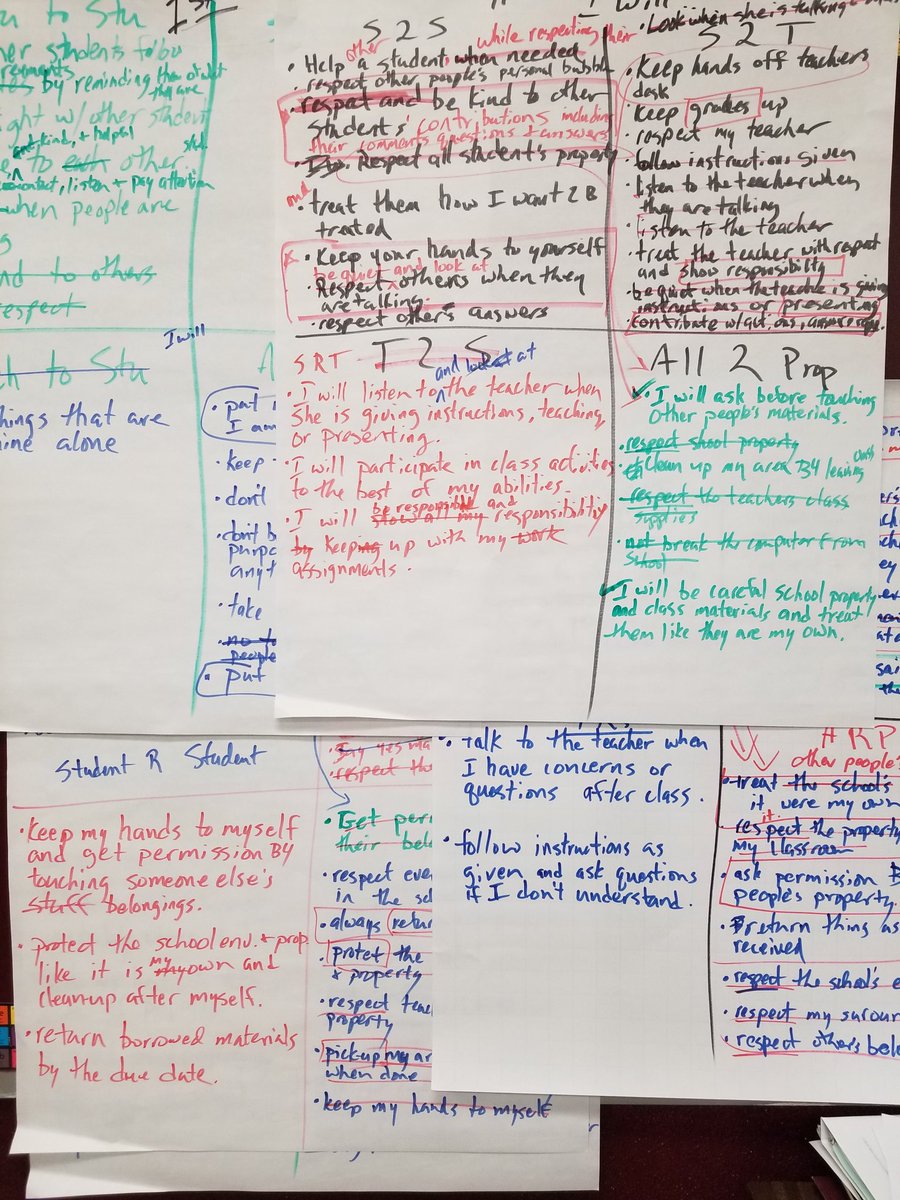 1st
n to Stu
her students follow
by reminding them of what
they are
ight w/ other student
and, kind, + helpful
to each other.
contact, listen + pay attention
when people are
nd to others
respect
ch to Stu
I will
things that are
mine alone
put
I am
keep
don't
don't b
purpo
anyt
take
no to
people
put
S 2 S
other
while respecting their
• Help a student when needed
• respect other people's personal bubble
• respect and be kind to other
students' contributions including
their comments questions + answers
• Respect all student's property
and
• treat them how I want 2 B
treated
• Keep your hands to yourself
be quiet and look at
• Respect others when they
are talking.
• respect other's answers
I will
• Look when she is talking
S 2 T
• Keep hands off teachers
desk
• Keep grades up
• respect my teacher
• follow instructions given
• listen to the teacher when
they are talking
• listen to the teacher
• treat the teacher with respect
and show responsibilty
• be quiet when the teacher is giving
instructions or presenting
• contribute
SRT T 2 S
and look at
• I will listen to the teacher when
she is giving instructions, teaching
or presenting.
• I will participate in class activities
to the best of my abilities.
be responsible and
• I will show all my responsibility
by keeping up with my work
assignments.
All 2 Prop
• I will ask before touching
other people's materials.
• respect shool property
• Clean up my area B4 leaving
• respect the teachers class
supplies
• not break the computer from
school
I will be careful school property
and class materials and treat
them like they are my own.
Student R Student
• Keep my hands to myself
and get permission B4
touching someone else's
stuff belongings.
• protect the school env. + prop.
like it is my own and
clean-up after myself.
• return borrowed materials
by the due date.
• Say yes ma
• respect the
• Get peri
their belo
• respect eve
in the sc
• always retur
• protet the
+ property
• respect teac
property
• pick-up my ar
when done
• keep my hands to myself
• Talk to the teacher when
I have concerns or
questions after class.
• follow instructions as
given and ask questions
if I don't understand.
ARP
other people's
• treat the school's
it were my own
it
• respect the property
my classroom
• ask permission B
people's property.
• return thing as
received
• respect the school's e
• respect my surour
• respect others belo